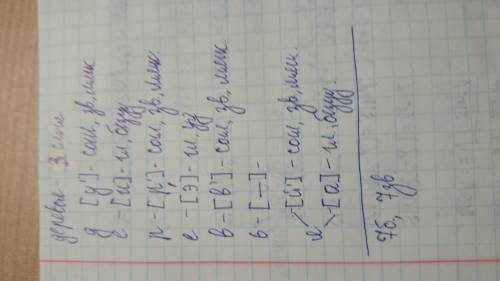 деревья - 3 слога
д [д'] - согл, зв, мягк
е - [и] - гл, безуд
р - [р'] - согл, зв, мягк.
е - [э] - гл, уд
в - [в'] - согл, зв, мягк
ь - [-] -
я [й'] - согл, зв, мягк.
[а] - гл, безуд.
7б, 7зв